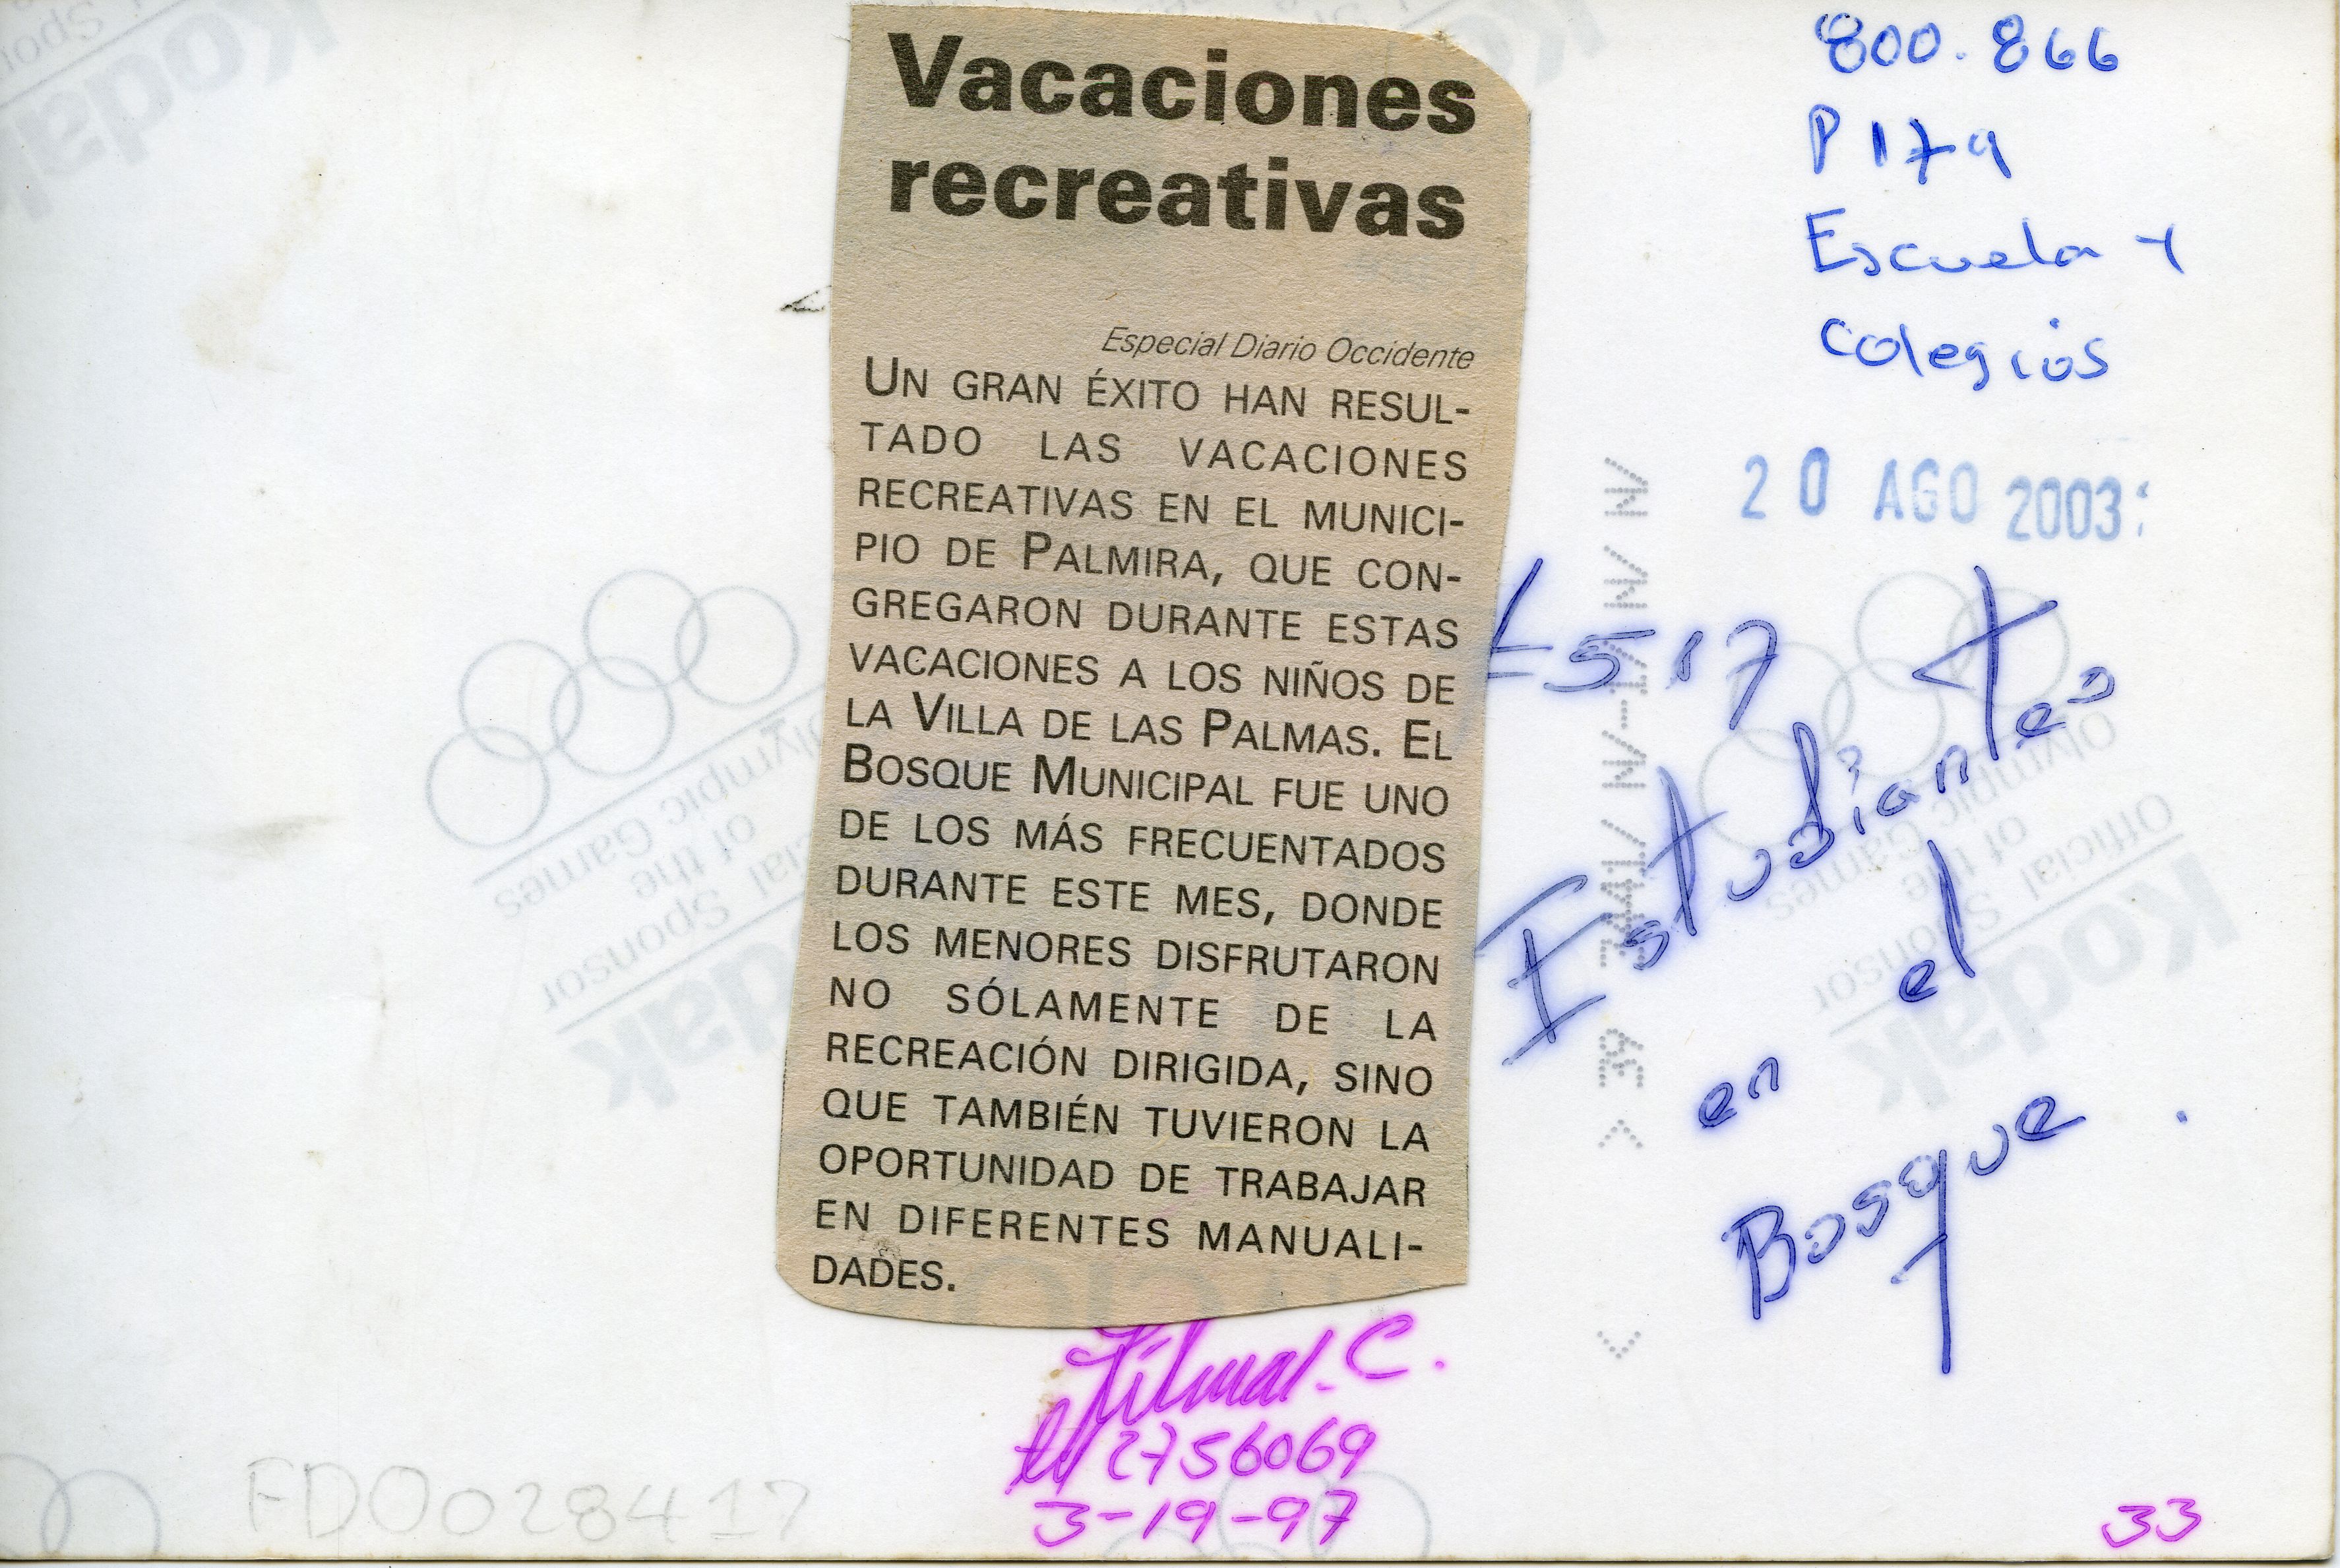 Vacaciones
recreativas
Especial Diario Occidente
UN GRAN ÉXITO HAN RESUL-
TADO LAS VACACIONES
RECREATIVAS EN EL MUNICI-
PIO DE PALMIRA, QUE CON-
GREGARON DURANTE ESTAS
VACACIONES A LOS NIÑOS DE
LA VILLA DE LAS PALMAS. EL
BOSQUE MUNICIPAL FUE UNO
DE LOS MÁS FRECUENTADOS
DURANTE ESTE MES, DONDE
LOS MENORES DISFRUTARON
NO SÓLAMENTE DE LA
RECREACIÓN DIRIGIDA, SINO
QUE TAMBIÉN TUVIERON LA
OPORTUNIDAD DE TRABAJAR
EN DIFERENTES MANUALI-
DADES.
800.866
P 179
Escuela y
Colegios
20 AGO 2003
Estudiantes
en el
Bosque
C.
2756069
3-19-97
33
FD0028417
Kodak
Official Sponsor
of the
Olympic Games
Kodak